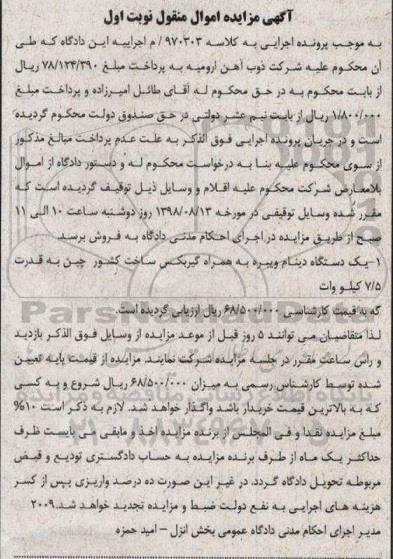 آگهی مزایده اموال منقول نوبت اول
به موجب پرونده اجرایی به کلاسه ۹۷۰۳۰۳ / م اجراییه این دادگاه که طی
آن محکوم علیه شرکت ذوب آهن ارومیه به پرداخت مبلغ ۷۸/۱۲۴/۳۹۰ ریال
از بابت محکوم به در حق محکوم له آقای طائل امیرزاده و پرداخت مبلغ
۱/۸۰۰/۰۰۰ ریال از بابت نیم عشر دولتی در حق صندوق دولت محکوم گردیده
است و در جریان پرونده اجرایی فوق الذکر به علت عدم پرداخت مبالغ مذکور
از سوی محکوم علیه بنا به درخواست محکوم له و دستور دادگاه از اموال
بلامعارض شرکت محکوم علیه اقلام و وسایل ذیل توقیف گردیده است که
مقرر شده وسایل توقیفی در مورخه ۱۳۹۸/۰۸/۱۳ روز دوشنبه ساعت ۱۰ الی ۱۱
صبح از طریق مزایده در اجرای احکام مدنی دادگاه به فروش برسد
۱-یک دستگاه دینام ویبره به همراه گیربکس ساخت کشور چین به قدرت
۷/۵ کیلو وات
که به قیمت کارشناسی ۶۸/۵۰۰/۰۰۰ ریال ارزیابی گردیده است.
لذا متقاضیان می توانند ۵ روز قبل از موعد مزایده از وسایل فوق الذکر بازدید
و راس ساعت مقرر در جلسه مزایده شرکت نمایند. مزایده از قیمت پایه تعیین
شده توسط کارشناس رسمی به میزان ۶۸/۵۰۰/۰۰۰ ریال شروع و به کسی
که به بالاترین قیمت خریدار باشد واگذار خواهد شد. لازم به ذکر است ۱۰%
مبلغ مزایده نقدا و فی المجلس از برنده مزایده اخذ و مابقی می بایست ظرف
حداکثر یک ماه از طرف برنده مزایده به حساب دادگستری تودیع و قبض
مربوطه تحویل دادگاه گردد. در غیر این صورت ده درصد واریزی پس از کسر
هزینه های اجرایی به نفع دولت ضبط و مزایده تجدید خواهد شد.۲۰۰۹
مدیر اجرای احکام مدنی دادگاه عمومی بخش انزل – امید حمزه